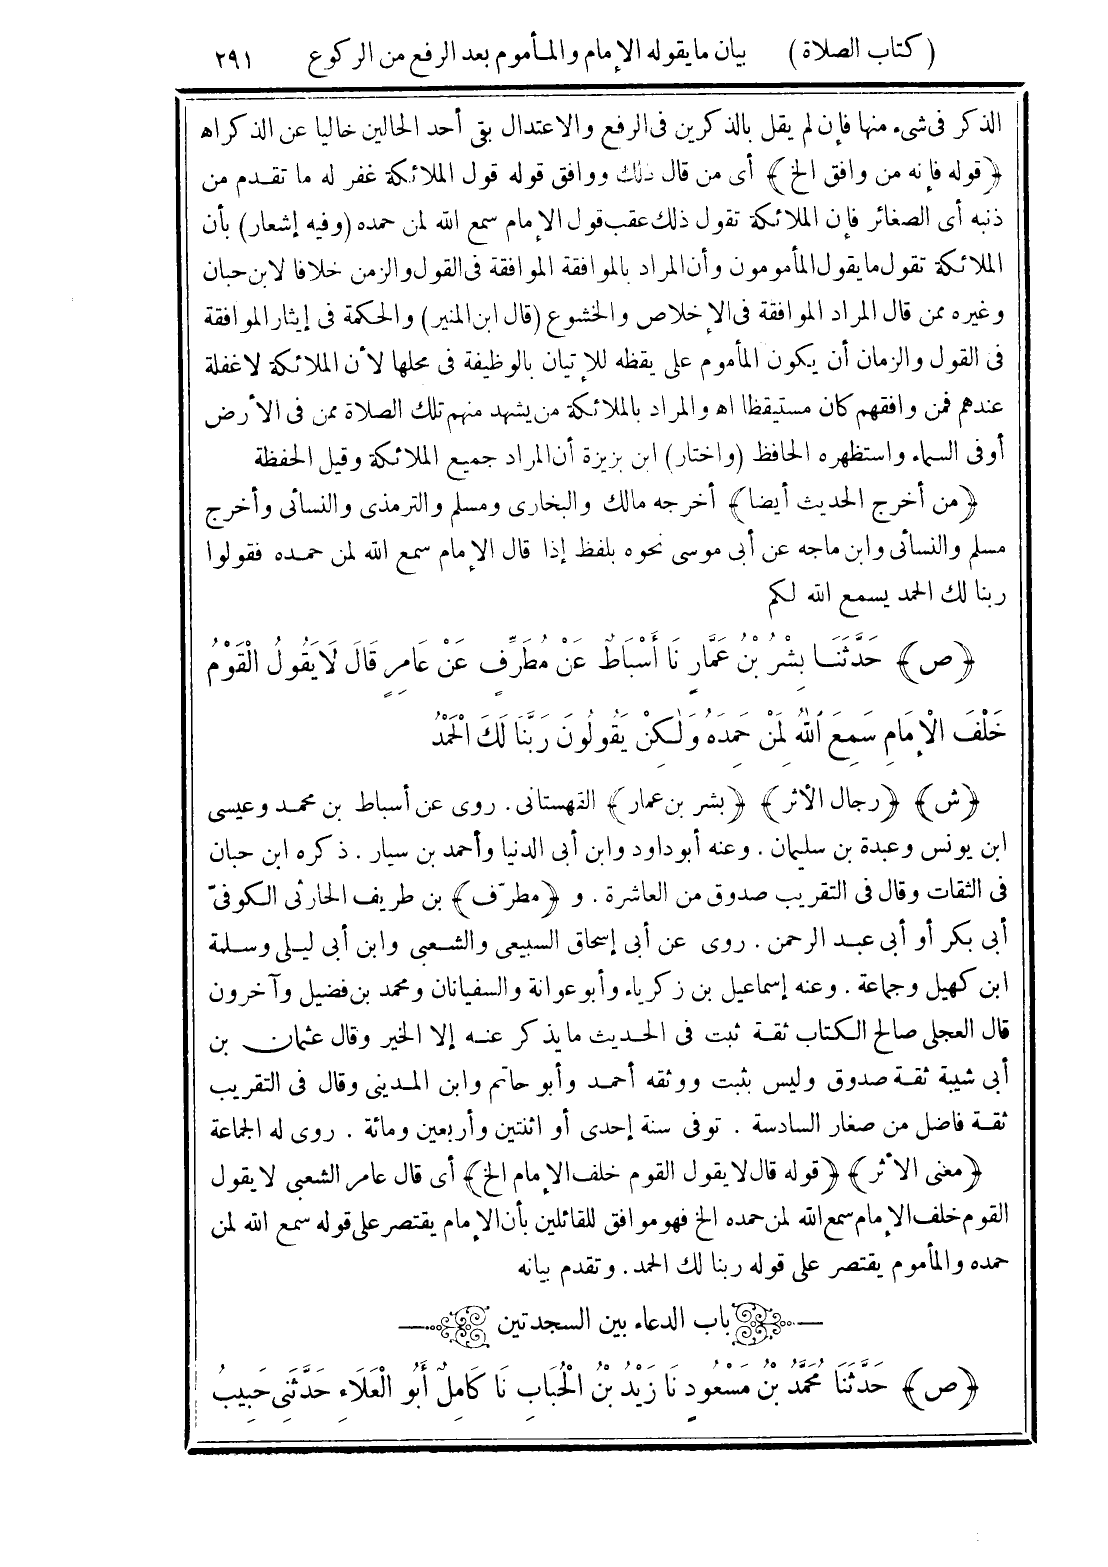 ( كتاب الصلاة ) بيان ما يقوله الإمام والمأموم بعد الرفع من الركوع ٢٩١
الذكر فى شىء منها فإن لم يقل بالذكرين فى الرفع والاعتدال بقى أحد الحالين خاليا عن الذكر اه
﴿قوله فإنه من وافق الخ﴾ أى من قال ذلك ووافق قوله قول الملائكة غفر له ما تقدم من
ذنبه أى الصغائر فإن الملائكة تقول ذلك عقب قول الإمام سمع الله لمن حمده (وفيه إشعار) بأن
الملائكة تقول ما يقول المأمومون وأن المراد بالموافقة الموافقة فى القول والزمن خلافا لابن حبان
وغيره ممن قال المراد الموافقة فى الإخلاص والخشوع (قال ابن المنير) والحكمة فى إيثار الموافقة
فى القول والزمان أن يكون المأموم على يقظه للإتيان بالوظيفة فى محلها لأن الملائكة لا غفلة
عندهم فمن وافقهم كان مستيقظا اه والمراد بالملائكة من يشهد منهم تلك الصلاة ممن فى الأرض
أو فى السماء واستظهره الحافظ (واختار) ابن بزيزة أن المراد جميع الملائكة وقيل الحفظة
﴿من أخرج الحديث أيضا﴾ أخرجه مالك والبخارى ومسلم والترمذى والنسائى وأخرج
مسلم والنسائى وابن ماجه عن أبى موسى نحوه بلفظ إذا قال الإمام سمع الله لمن حمده فقولوا
ربنا لك الحمد يسمع الله لكم
﴿ص﴾ حَدَّثَنَا بِشْرُ بْنُ عَمَّارٍ نَا أَسْبَاطٌ عَنْ مُطَرِّفٍ عَنْ عَامِرٍ قَالَ لَا يَقُولُ الْقَوْمُ
خَلْفَ الْإِمَامِ سَمِعَ اللهُ لِمَنْ حَمِدَهُ وَلَكِنْ يَقُولُونَ رَبَّنَا لَكَ الْحَمْدُ
﴿ش﴾ ﴿رجال الأثر﴾ ﴿بشر بن عمار﴾ القهستانى. روى عن أسباط بن محمد وعيسى
ابن يونس وعبدة بن سليمان. وعنه أبو داود وابن أبى الدنيا وأحمد بن سيار. ذكره ابن حبان
فى الثقات وقال فى التقريب صدوق من العاشرة. و ﴿مطرّف﴾ بن طريف الحارثى الكوفىّ
أبى بكر أو أبى عبد الرحمن. روى عن أبى إسحاق السبيعى والشعبى وابن أبى ليلى وسلمة
ابن كهيل وجماعة. وعنه إسماعيل بن زكرياء وأبو عوانة والسفيانان ومحمد بن فضيل وآخرون
قال العجلى صالح الكتاب ثقة ثبت فى الحديث ما يذكر عنه إلا الخير وقال عثمان بن
أبى شيبة ثقة صدوق وليس بثبت ووثقه أحمد وأبو حاتم وابن المدينى وقال فى التقريب
ثقة فاضل من صغار السادسة. توفى سنة إحدى أو اثنتين وأربعين ومائة. روى له الجماعة
﴿معنى الأثر﴾ ﴿قوله قال لا يقول القوم خلف الإمام الخ﴾ أى قال عامر الشعبى لا يقول
القوم خلف الإمام سمع الله لمن حمده الخ فهو موافق للقائلين بأن الإمام يقتصر على قوله سمع الله لمن
حمده والمأموم يقتصر على قوله ربنا لك الحمد. وتقدم بيانه
باب الدعاء بين السجدتين
﴿ص﴾ حَدَّثَنَا مُحَمَّدُ بْنُ مَسْعُودٍ نَا زَيْدُ بْنُ الْحُبَابِ نَا كَامِلٌ أَبُو الْعَلَاءِ حَدَّثَنِى حَبِيبُ